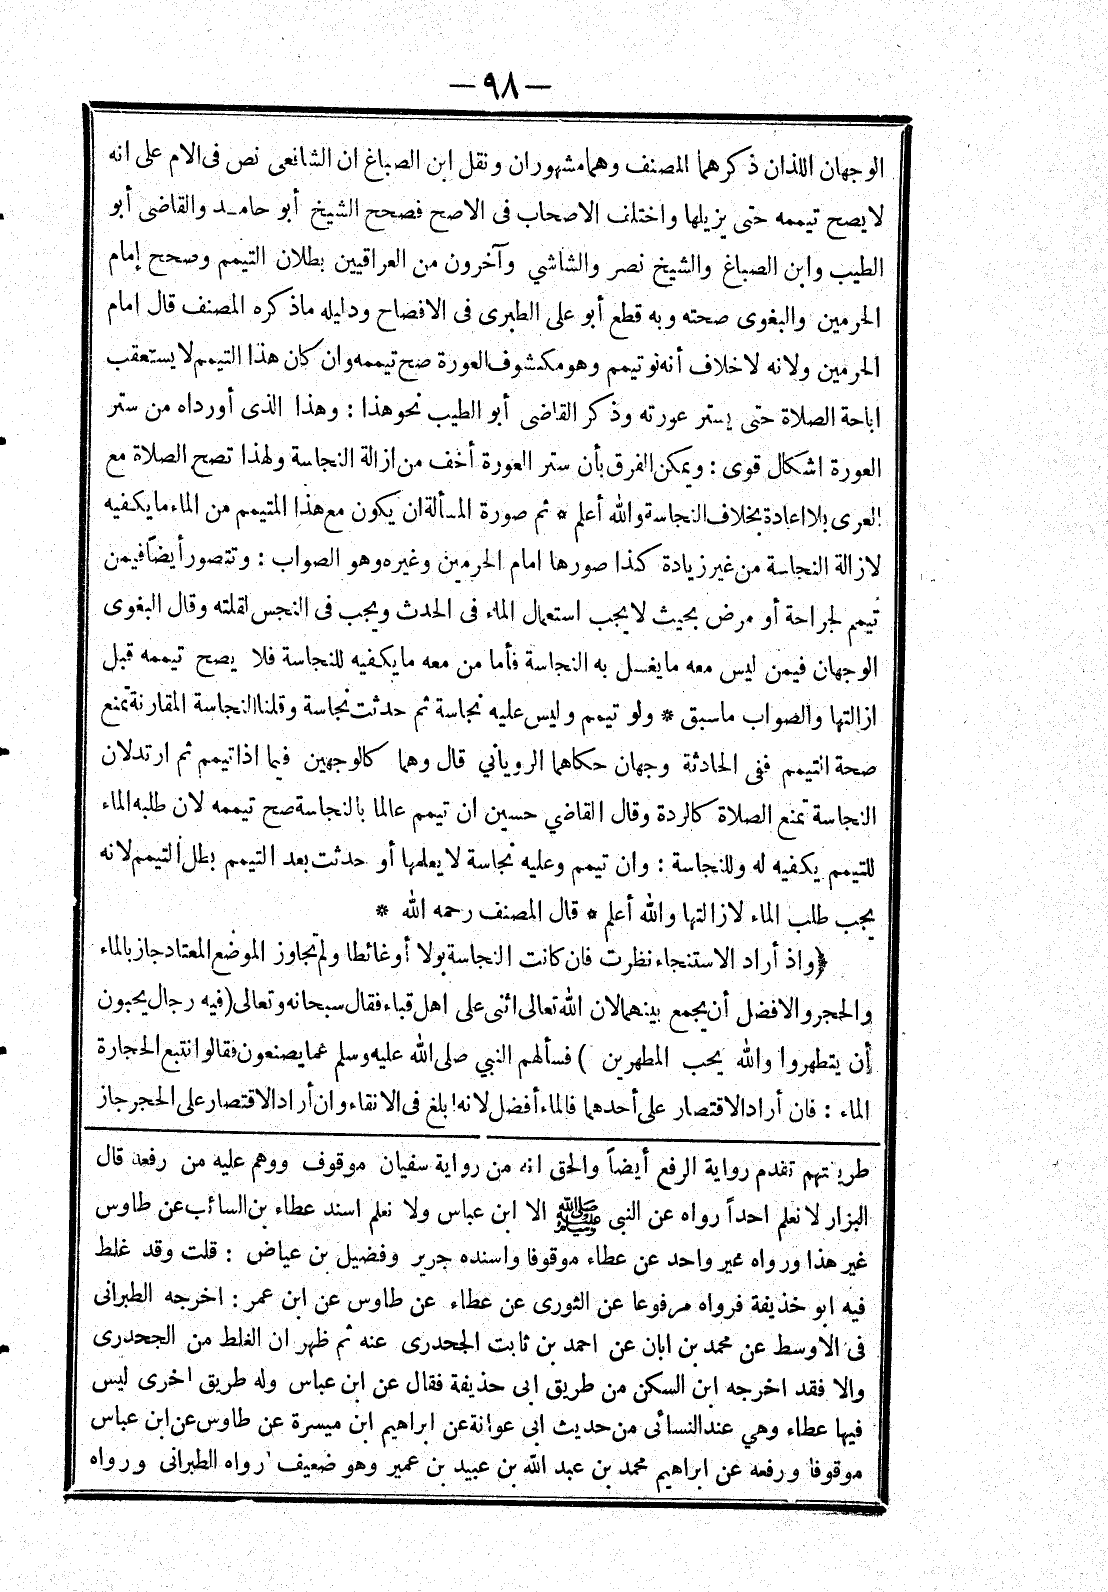 — ٩٨ —
الوجهان اللذان ذكرهما المصنف وهما مشهوران ونقل ابن الصباغ ان الشافعى نص فى الام على انه
لا يصح تيممه حتى يزيلها واختلف الاصحاب فى الاصح فصحح الشيخ أبو حامد والقاضى أبو
الطيب وابن الصباغ والشيخ نصر والشاشي وآخرون من العراقيين بطلان التيمم وصحح إمام
الحرمين والبغوى صحته وبه قطع أبو على الطبرى فى الافصاح ودليله ماذكره المصنف قال امام
الحرمين ولانه لا خلاف أنه لو تيمم وهو مكشوف العورة صح تيممه وان كان هذا التيمم لا يستعقب
اباحة الصلاة حتى يستر عورته وذكر القاضى أبو الطيب نحو هذا : وهذا الذى أورداه من ستر
العورة اشكال قوى : ويمكن الفرق بأن ستر العورة أخف من ازالة النجاسة ولهذا تصح الصلاة مع
العرى بلا اعادة بخلاف النجاسة والله أعلم * ثم صورة المسألة ان يكون مع هذا المتيمم من الماء ما يكفيه
لازالة النجاسة من غير زيادة كذا صورها امام الحرمين وغيره وهو الصواب : وتتصور أيضاً فيمن
تيمم لجراحة أو مرض بحيث لا يجب استعمال الماء فى الحدث ويجب فى النجس لقلته وقال البغوى
الوجهان فيمن ليس معه ما يغسل به النجاسة فأما من معه ما يكفيه للنجاسة فلا يصح تيممه قبل
ازالتها والصواب ماسبق * ولو تيمم وليس عليه نجاسة ثم حدثت نجاسة وقلنا النجاسة المقارنة تمنع
صحة التيمم ففى الحادثة وجهان حكاهما الروياني قال وهما كالوجهين فيما اذا تيمم ثم ارتد لان
النجاسة تمنع الصلاة كالردة وقال القاضي حسين ان تيمم عالما بالنجاسة صح تيممه لان طلبه الماء
للتيمم يكفيه له وللنجاسة : وان تيمم وعليه نجاسة لا يعلمها أو حدثت بعد التيمم بطل التيمم لانه
يجب طلب الماء لازالتها والله أعلم * قال المصنف رحمه الله *
﴿واذ أراد الاستنجاء نظرت فان كانت النجاسة بولا أو غائطا ولم تجاوز الموضع المعتاد جاز بالماء
والحجر والافضل أن يجمع بينهما لان الله تعالى اثنى على اهل قباء فقال سبحانه وتعالى (فيه رجال يحبون
أن يتطهروا والله يحب المطهرين ) فسألهم النبي صلى الله عليه وسلم عما يصنعون فقالوا نتبع الحجارة
الماء : فان أراد الاقتصار على أحدهما فالماء أفضل لانه ابلغ فى الانقاء وان أراد الاقتصار على الحجر جاز
طريقتهم تقدم رواية الرفع أيضاً والحق انه من رواية سفيان موقوف ووهم عليه من رفعه قال
البزار لا نعلم احداً رواه عن النبي ﷺ الا ابن عباس ولا نعلم اسند عطاء بن السائب عن طاوس
غير هذا ورواه غير واحد عن عطاء موقوفا واسنده جرير وفضيل بن عياض : قلت وقد غلط
فيه ابو خذيفة فرواه مرفوعا عن الثورى عن عطاء عن طاوس عن ابن عمر : اخرجه الطبرانى
فى الاوسط عن محمد بن ابان عن احمد بن ثابت الجحدرى عنه ثم ظهر ان الغلط من الجحدرى
والا فقد اخرجه ابن السكن من طريق ابى حذيفة فقال عن ابن عباس وله طريق اخرى ليس
فيها عطاء وهي عند النسائى من حديث ابى عوانة عن ابراهيم ابن ميسرة عن طاوس عن ابن عباس
موقوفا ورفعه عن ابراهيم محمد بن عبد الله بن عبيد بن عمير وهو ضعيف رواه الطبرانى ورواه